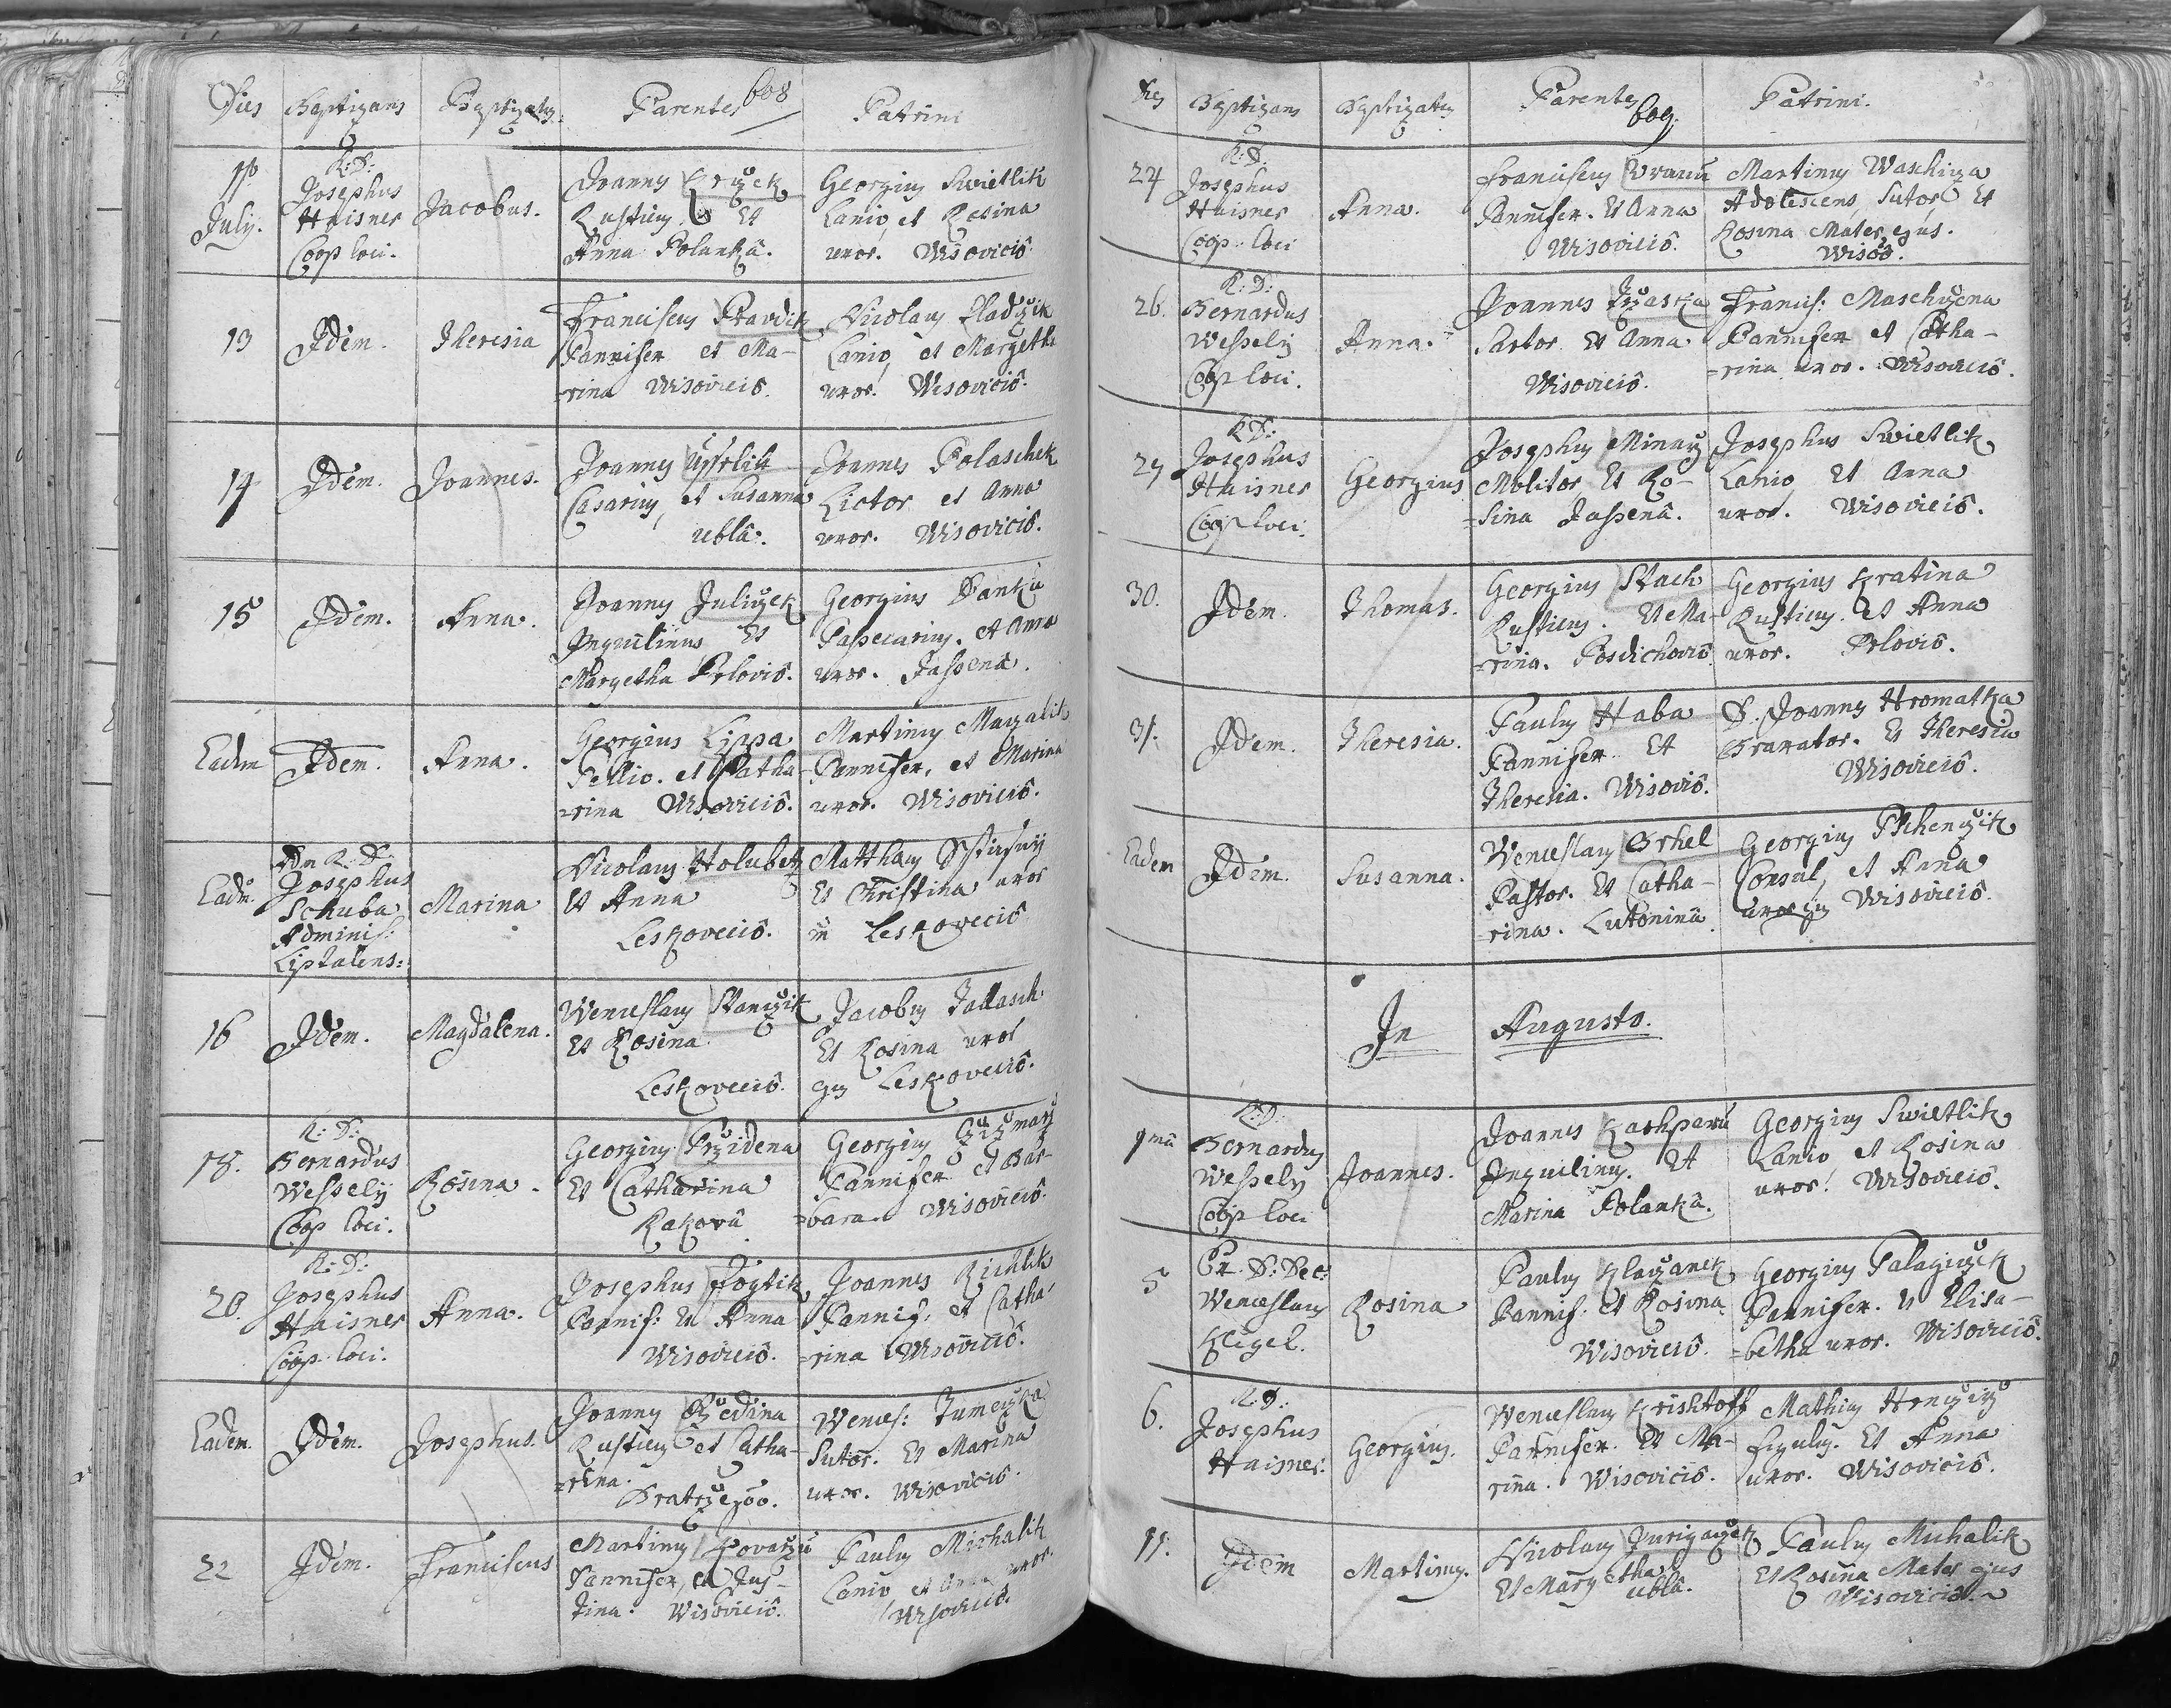 608
Dies Baptizans Baptizatus Parentes Patrini
11
July.
R: D:
Josephus
Haisner
Coop loci.
Jacobus.
Joannes
Rusticus Et
Anna Polankâ.
Georgius Swietlik
Lanio, et Rosina
uxor. Wisoviciô
13
Idem.
Theresia
Franciscus
Pannifex et Ma-
-rina Wisoviciô.
Nicolaus Sladezik
Lanio, et Margetha
uxor. Wisoviciô.
14
Idem.
Joannes.
Joannes
Casarius, et Susanna
ublâ.
Joannes Polaschek
Lictor et Anna
uxor. Wisoviciô.
15
Idem.
Anna.
Joannes Juliczek
Inquilinus Et
Margetha Prloviô.
Georgius
et Anna
uxor. Jassenâ.
Eadem
Idem.
Anna.
Georgius Lippa
Pellio. et Catha-
-rina Wisoviciô.
Martinus Maczalik
Pannifex, et Marina
uxor. Wisoviciô.
Eadem
R: D:
Josephus
Schuba
Adminis:
Liptalens:
Marina
Nicolaus Holubetz
Et Anna
Leskoveciô.
Matthaeus
Et Christina uxor
in Leskoveciô
16
Idem.
Magdalena.
Wenceslaus Stanczik
Et Rosina
Leskoveciô.
Jacobus Tallasch.
Et Rosina uxor
ejus Leskoveciô.
18.
R: D:
Bernardus
Wesselÿ
Coop loci.
Rosina.
Georgius Przidena
Et Catharina
Rakovâ
Georgius
Pannifex et Bar-
-bara. Wisoviciô.
20.
R: D:
Josephus
Haisner
Coop loci.
Anna.
Josephus Foytik
Pannif: Et Anna
Wisoviciô.
Joannes Richlik
Pannif: et Catha-
-rina Wisoviciô.
Eadem.
Idem.
Josephus.
Joannes Rzedina
Rusticus et Catha-
-rina.
Bratrzegôv.
Wences:
Sutor. Et Marina
uxor. Wisoviciô.
22
Idem.
Franciscus
Martinus Kovarzu
Pannifex, et Jus-
tina. Wisoviciô.
Paulus Michalik
Lanio et Anna uxor.
Wisoviciô.
609.
Dies Baptizans Baptizatus Parentes Patrini.
24
R: D.
Josephus
Haisner
Coop loci
Anna.
Franciscus
Pannifex. Et Anna
Wisoviciô.
Martinus Waschiza
Adolescens, Sutor, Et
Rosina Mater ejus.
Wisoô.
26.
R: D:
Bernardus
Wesselÿ
Coop loci.
Anna.
Joannes
Sartor. Et Anna
Wisoviciô.
Francis:
Pannifex et Catha-
-rina uxor. Wisoviciô.
R D:
Josephus
Haisner
Coop loci
Georgius
Josephus Minarz
Molitor, Et Ro-
-sina Jassenâ.
Josephus Swietlik
Lanio, Et Anna
uxor. Wisoviciô.
30.
Idem.
Thomas.
Georgius Stach
Rusticus. Et Ma-
-rina.
Georgius Kratina
Rusticus. Et Anna
uxor. Prloviô.
31.
Idem.
Theresia.
Paulus Haba
Pannifex. Et
Theresia. Wisoviô.
D. Joannes Hromatka
Et Theresia
Wisoviciô.
Eadem
Idem.
Susanna.
Wenceslaus Orhel
Pastor. Et Catha-
-rina. Lutoninâ.
Georgius Pschenczik
Consul, et Anna
uxor ejus Wisoviciô.
In Augusto.
1mâ
R: D:
Bernardus
Wesselÿ
Coop loci
Joannes.
Joannes Kaschparu
Inquilinus. Et
Marina Polankâ.
Georgius Swietlik
Lanio, et Rosina
uxor. Wisoviciô.
5
D: Dec:
Wenceslaus
Rosina
Paulus Klaczanek
Pannif: et Rosina
Wisoviciô.
Georgius
Pannifex. Et Elisa-
-betha uxor. Wisoviciô.
6.
R: D:
Josephus
Haisner.
Georgius.
Wenceslaus Krishtoff
Pannifex. Et Ma-
rina. Wisoviciô.
Mathias
Figulus. Et Anna
uxor. Wisoviciô.
11.
Idem
Martinus.
Nicolaus
Et Margetha
ublâ.
Paulus Michalik
Et Rosina Mater ejus
Wisoviciô.